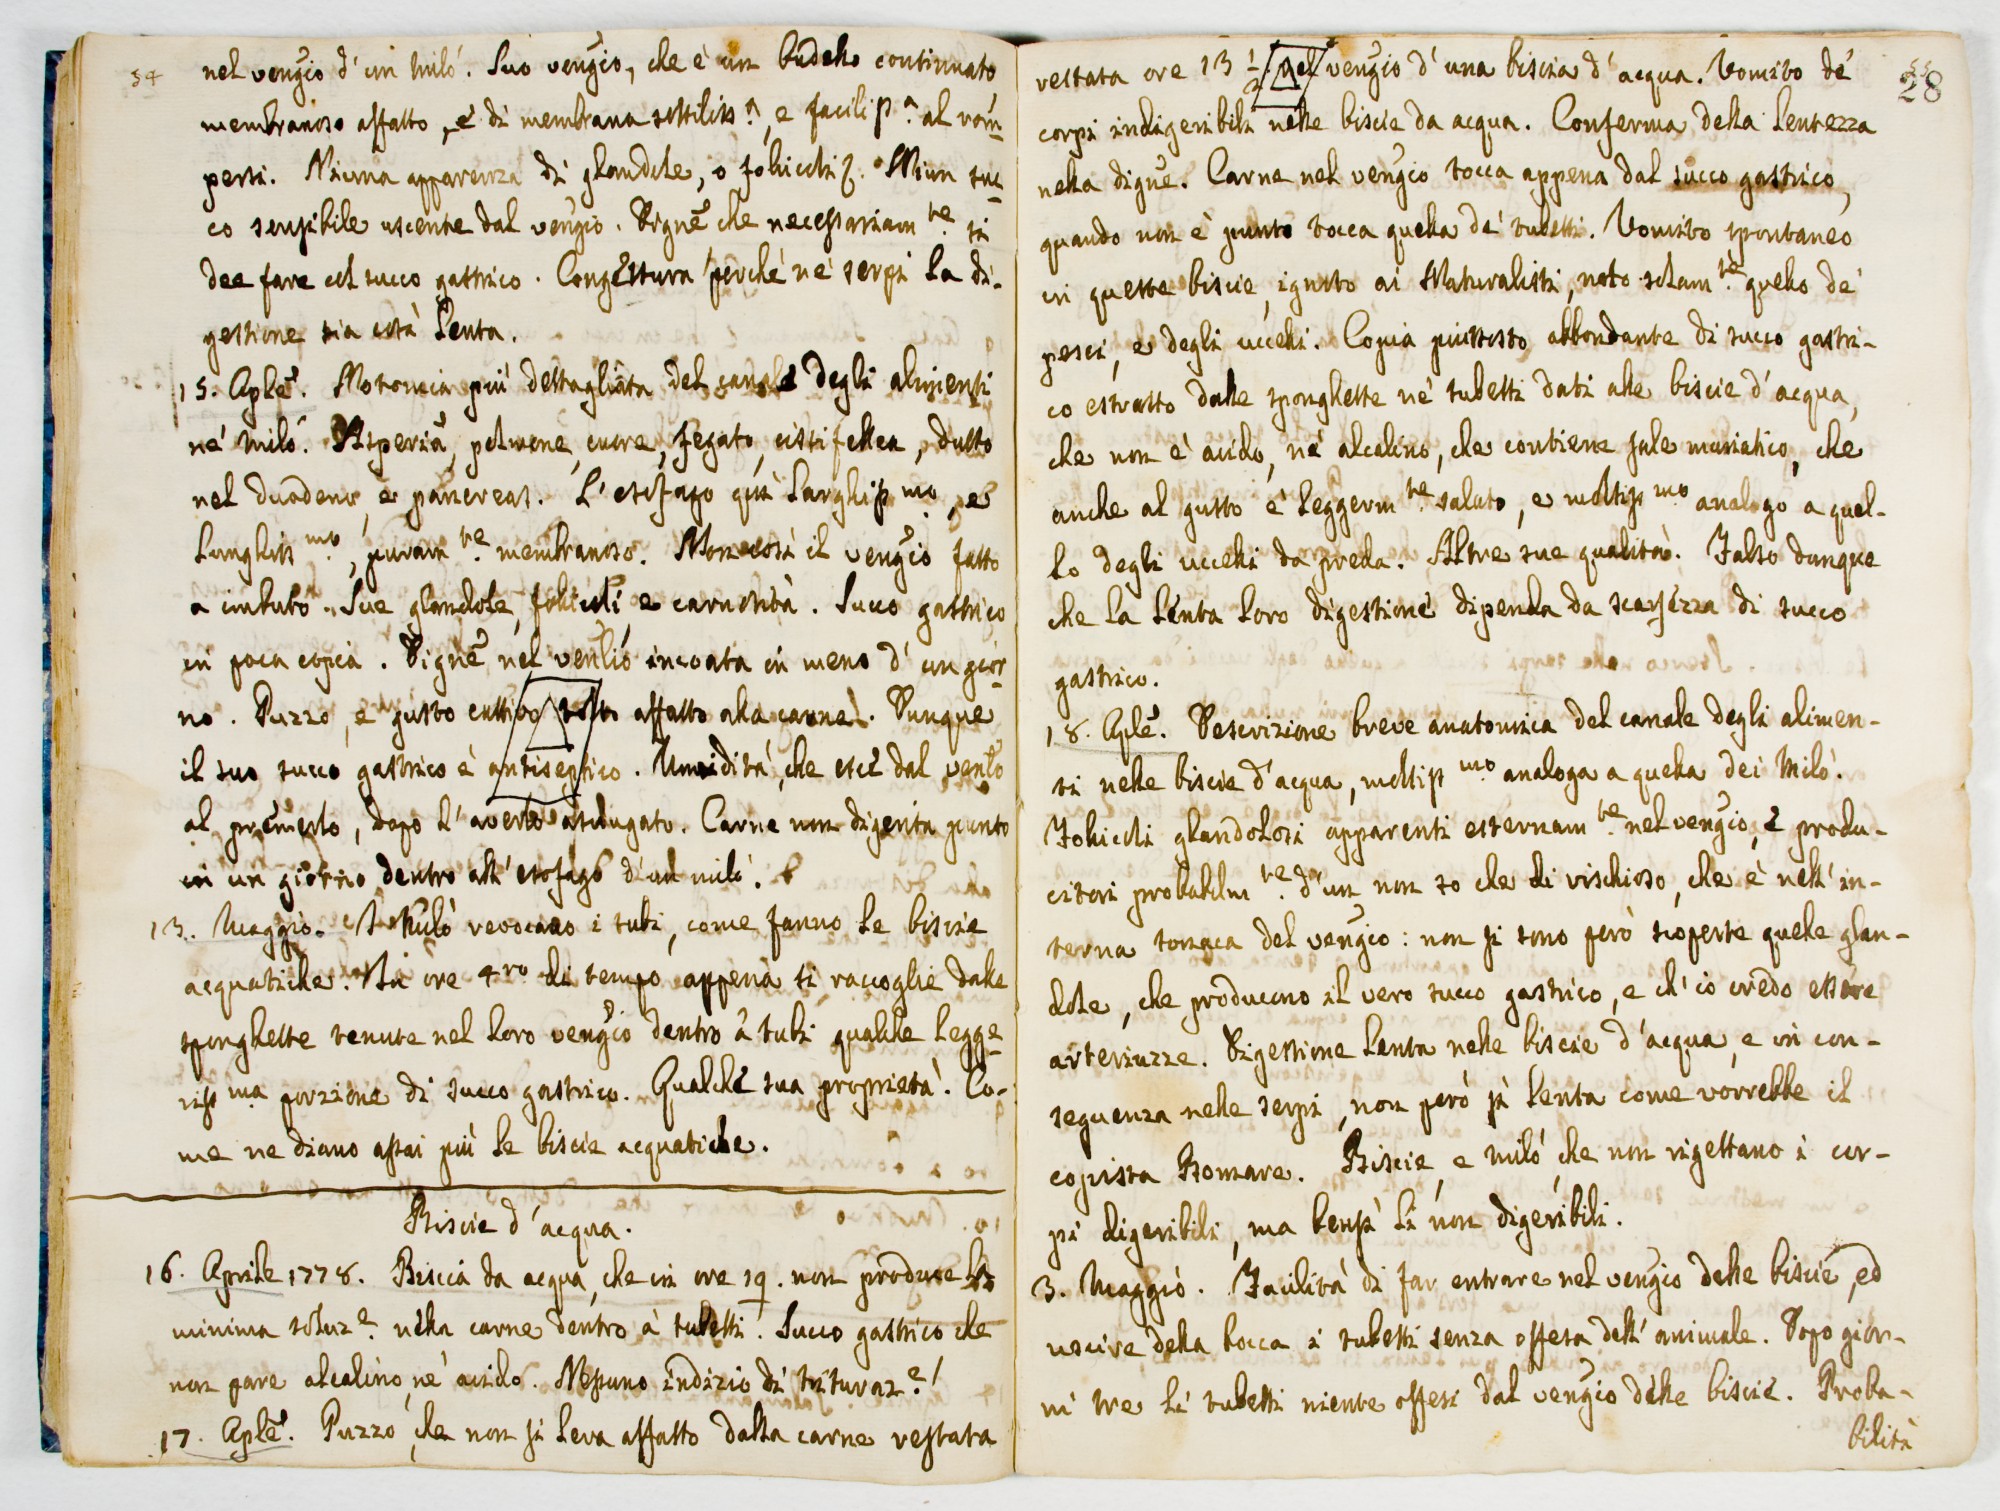 54
nel vengio d' un miló. Suo vengio, che è un budello continuato
membranoso affatto, e di membrana sottiliss.a, e faciliss.a al rom-
persi. Niuna apparenza di glandole, o follicoli &. Niun suc-
co sensibile uscente dal vengio. Digne che necessariam.te si
dee fare col succo gastrico. Congettura perchè ne' serpi la di-
gestione sia così lenta.
15. Aple. Notomia più dettagliata del canale degli alimenti
ne' miló. Asperia, polmone, cuore, fegato, cistifellea, dutto
nel duodeno, e pancreas. L' esofago qui larghiss.mo, e
lunghiss.mo, puram.te membranoso. Non così il vengio fatto
a imbuto. Sue glandole, follicoli, e carnosità. Succo gastrico
in poca copia. Digne nel ventlo incoata in meno d' un gior-
no. Puzzo, e gusto cattivo tolto affatto alla carne. Dunque
il suo succo gastrico è antiseptico. Umidità, che esce dal ventlo
al premerlo, dopo l' averlo asciugato. Carne non digerita punto
in un giorno dentro all' esofago d' un miló.
13. Maggio. I miló revocano i tubi, come fanno le biscie
acquatiche. In ore 4ro di tempo appena si raccoglie dalle
sponghette tenute nel loro vengio dentro a tubi qualche legge-
riss.ma porzione di succo gastrico. Qualche sua proprietà. Co-
me ne diano assai più le biscie acquatiche.
Biscie d' acqua.
16. Aprile 1778. Biscia da acqua, che in ore 19. non produce la
minima soluz.e nella carne dentro a tubetti. Succo gastrico che
non pare alcalino, ne' acido. Nessuno indizio di trituraz.e!
17. Aple. Puzzo, che non si leva affatto dalla carne restata
55
28
restata ore 13 1/2 nel vengio d' una biscia d' acqua. Vomito de'
corpi indigeribili nelle biscie da acqua. Conferma della lentezza
nella digne. Carne nel vengio tocca appena dal succo gastrico,
quando non è punto tocca quella de' tubetti. Vomito spontaneo
in queste biscie, ignoto ai Naturalisti, noto solam.te quello de'
pesci, e degli uccelli. Copia piuttosto abbondante di succo gastri-
co estratto dalle sponghette ne' tubetti dati alle biscie d' acqua,
che non è acido, ne' alcalino, che contiene sale muriatico, che
anche al gusto è leggerm.te salato, e moltiss.mo analogo a quel-
lo degli uccelli da preda. Altre sue qualità. Falso dunque
che la lenta loro digestione dipenda da scarsezza di succo
gastrico.
18. Aple. Descrizione breve anatomica del canale degli alimen-
ti nelle biscie d' acqua, moltiss.mo analoga a quella dei miló.
Follicoli glandolosi apparenti esternam.te nel vengio, e produ-
citori probabilm.te d' un non so che di vischioso, che è nell' in-
terna tonaca del vengio: non si sono però scoperte quelle glan-
dole, che producono il vero succo gastrico, e ch' io credo essere
arteriuzze. Digestione lenta nelle biscie d' acqua, e in con-
seguenza nelle serpi, non però sì lenta come vorrebbe il
copista Bomare. Biscie, e miló che non rigettano i cor-
pi digeribili, ma bensì li non digeribili.
3. Maggio. Facilità di far entrare nel vengio delle biscie, ed
uscire della bocca i tubetti senza offesa dell' animale. Dopo gior-
ni tre li tubetti niente offesi dal vengio delle biscie. Proba-
bilità